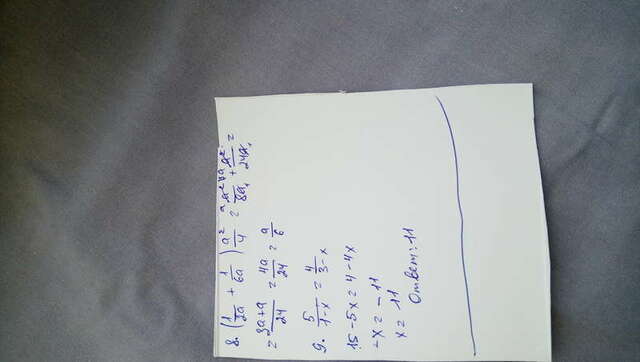 8. (1/2a + 1/6a) a²/4 = a²/8a + a²/24a =
= 3a+a/24 = 4a/24 = a/6
9. 5/1-x = 4/3-x
15 - 5x = 4 - 4x
-x = -11
x = 11
Ответ: 11